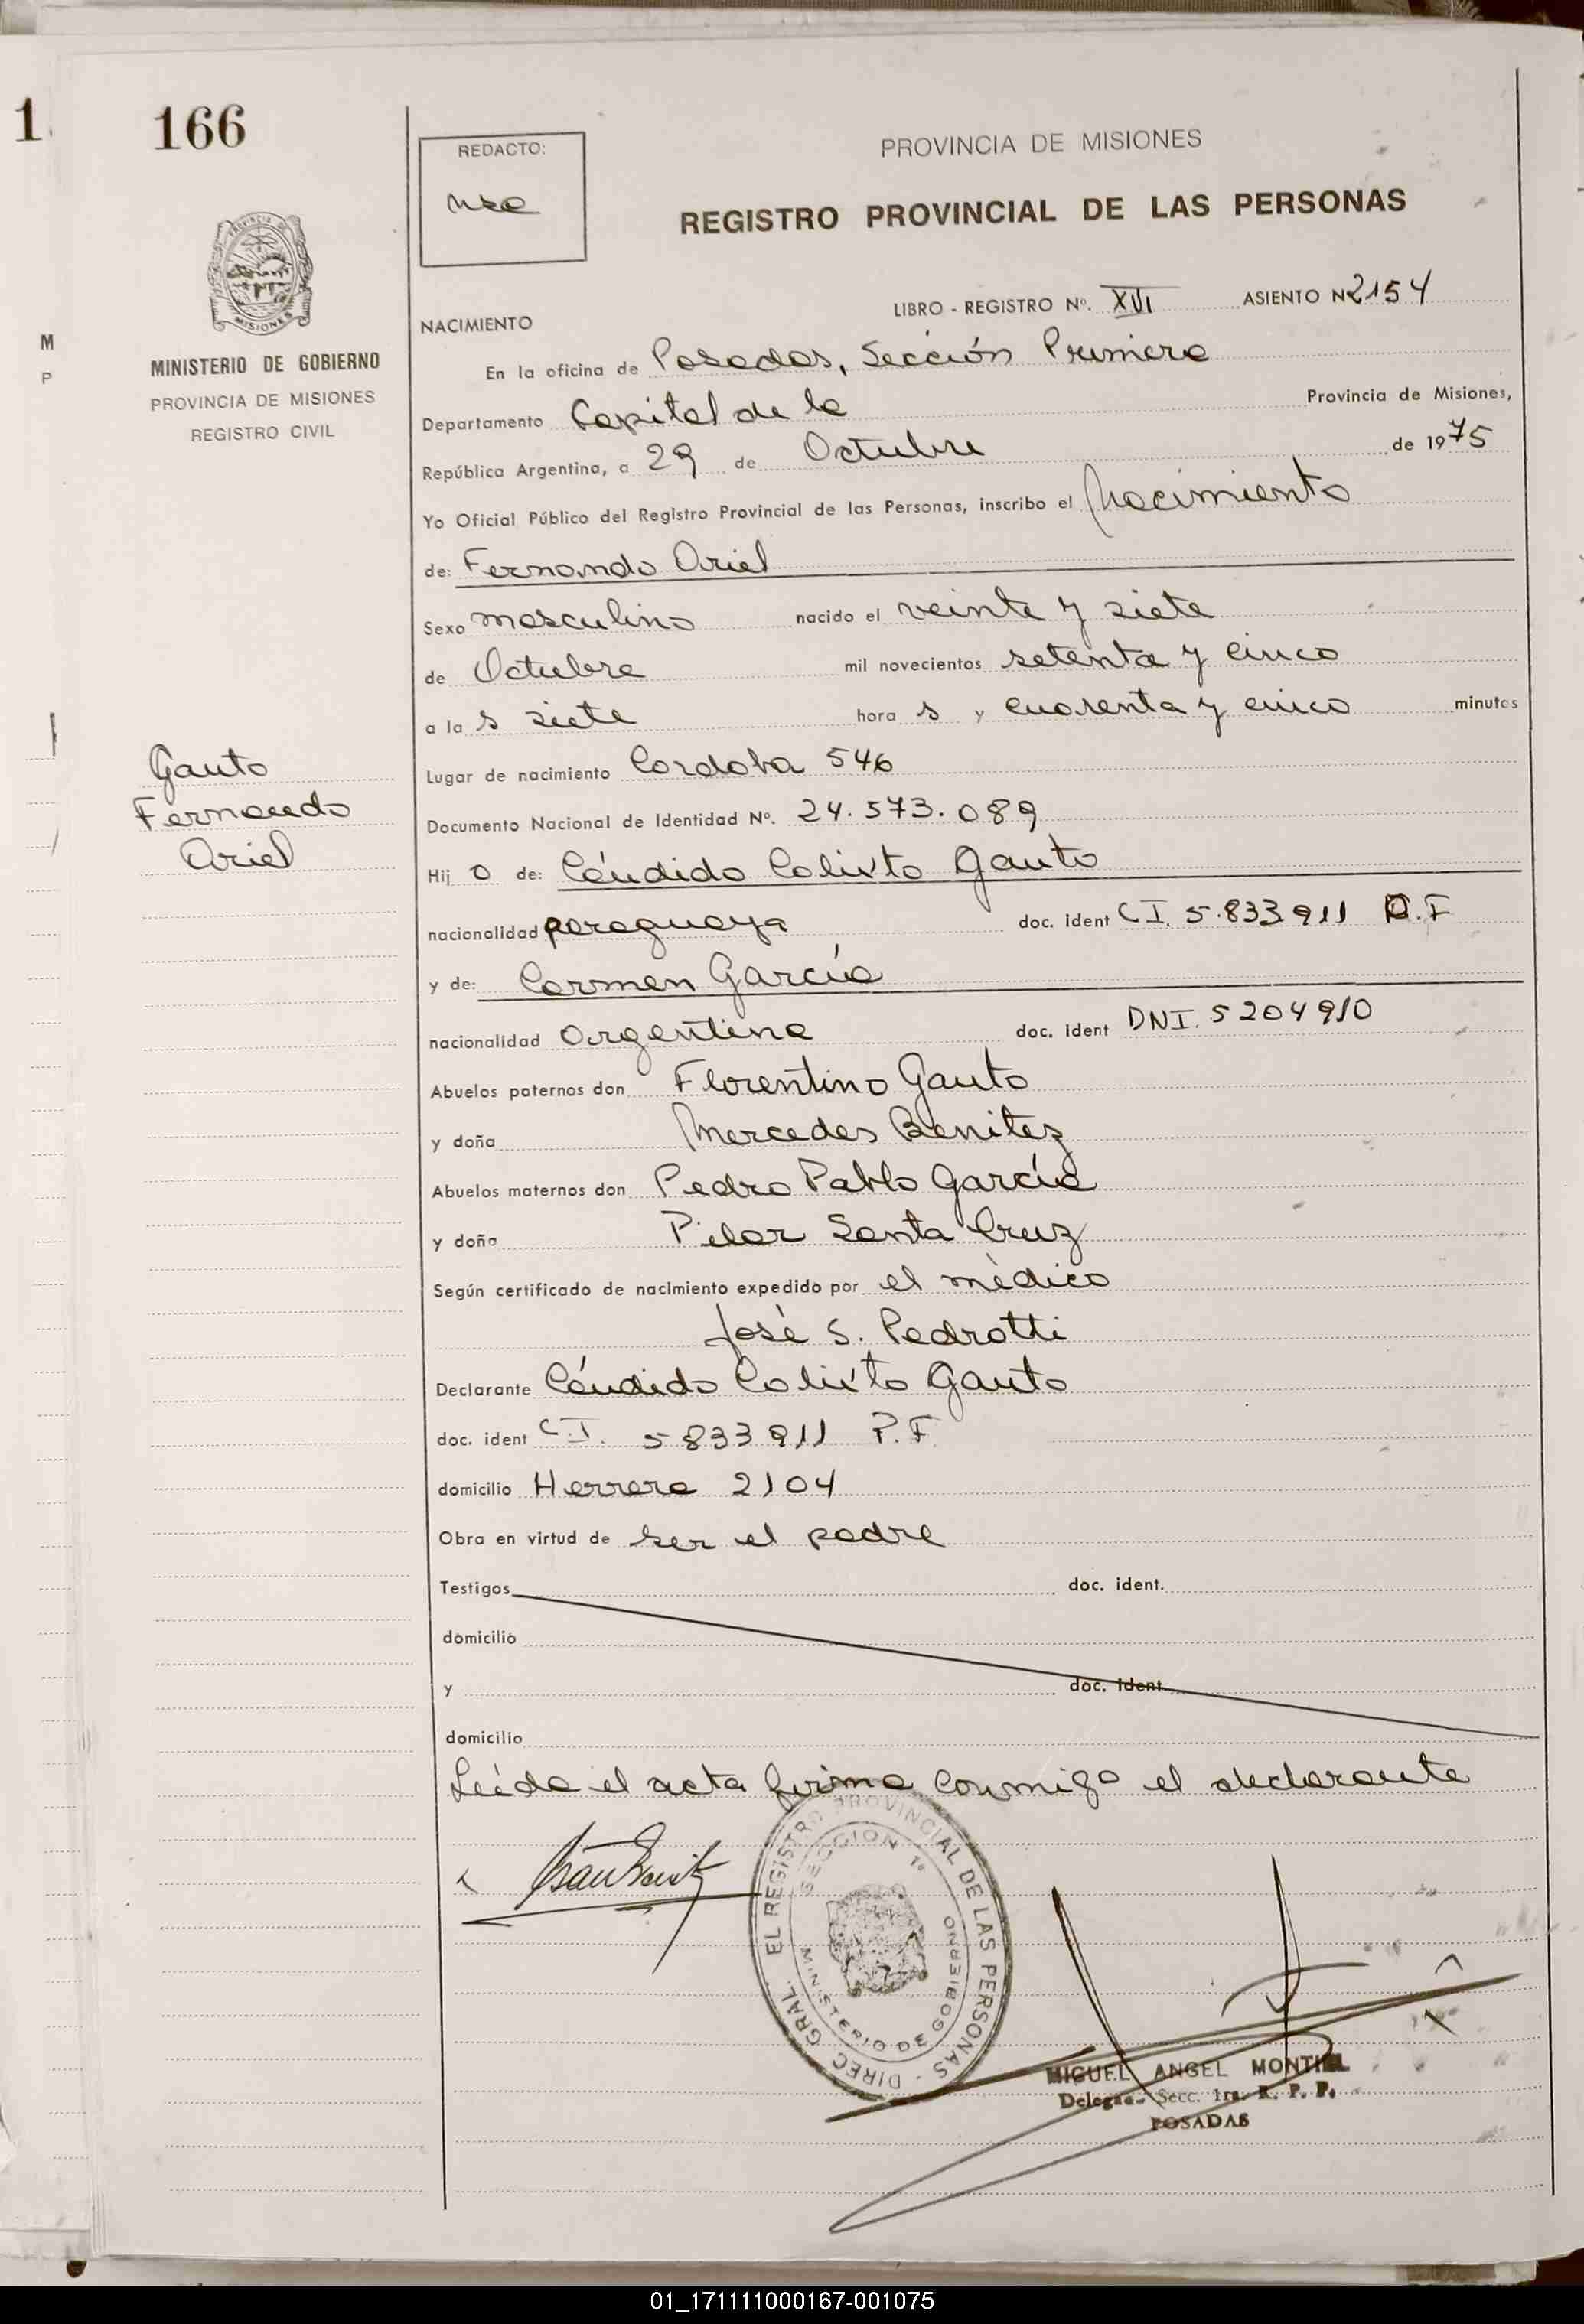 1
166
REDACTO:
PROVINCIA DE MISIONES
REGISTRO PROVINCIAL DE LAS PERSONAS
MISIONES
MINISTERIO DE GOBIERNO
PROVINCIA DE MISIONES
REGISTRO CIVIL
M
P
LIBRO - REGISTRO Nº. XVI ASIENTO Nº 2154
NACIMIENTO
En la oficina de Posadas, Sección Primera
Departamento Capital de la Provincia de Misiones,
República Argentina, a 29 de Octubre de 1975
Yo Oficial Público del Registro Provincial de las Personas, inscribo el Nacimiento
de: Fernando Ariel
Sexo masculino nacido el veinte y siete
de Octubre mil novecientos setenta y cinco
a la s siete hora s y cuarenta y cinco minutos
Gauto
Fernando
Ariel
Lugar de nacimiento Cordoba 546
Documento Nacional de Identidad Nº. 24.573.089
Hij o de: Cándido Calixto Gauto
nacionalidad paraguaya doc. ident C I. 5.833911 P.F
y de: Carmen García
nacionalidad Argentina doc. ident DNI. 5204910
Abuelos paternos don Florentino Gauto
y doña Mercedes Benitez
Abuelos maternos don Pedro Pablo García
y doña Pilar Santa Cruz
Según certificado de nacimiento expedido por el mèdico
Josè S. Pedrotti
Declarante Cándido Calixto Gauto
doc. ident C.I. 5833911 P.F.
domicilio Herrera 2104
Obra en virtud de ser el padre
Testigos doc. ident.
domicilio
y doc. ident.
domicilio
Leída el acta firma conmigo el declarante
DIREC. GRAL. EL REGISTRO PROVINCIAL DE LAS PERSONAS -
SECCION 1ª
MINISTERIO DE GOBIERNO
MIGUEL ANGEL MONTIEL
Delegado Secc. 1ra. R. P. P.
POSADAS
01_171111000167-001075